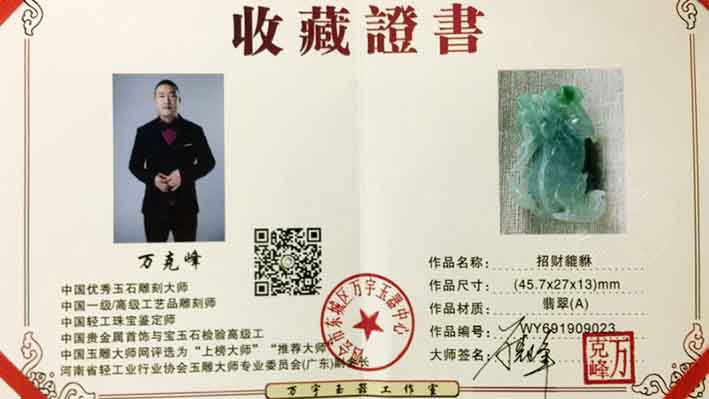 收藏證書
万克峰
中国优秀玉石雕刻大师
中国一级/高级工艺品雕刻师
中国轻工珠宝鉴定师
中国贵金属首饰与宝玉石检验高级工
中国玉雕大师网评选为“上榜大师”“推荐大师”
河南省轻工业行业协会玉雕大师专业委员会(广东)副会长
作品名称: 招财貔貅
作品尺寸: (45.7x27x13)mm
作品材质: 翡翠(A)
作品编号: WY691909023
大师签名:
万克峰
东城区万宇玉器中心
万宇玉器工作室